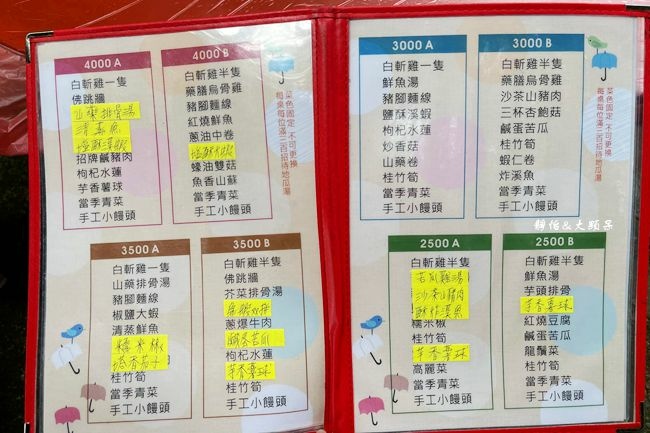 4000 A
白斬雞一隻
佛跳牆
山藥排骨湯
清蒸魚
招牌鹹豬肉
枸杞水蓮
芋香薯球
當季青菜
手工小饅頭
4000 B
白斬雞半隻
藥膳烏骨雞
豬腳麵線
紅燒鮮魚
蔥油中卷
蠔油雙菇
魚香山蘇
當季青菜
手工小饅頭
菜色固定 不可更換
每桌每位滿三百招待地瓜湯
3500 A
白斬雞一隻
山藥排骨湯
豬腳麵線
椒鹽大蝦
清蒸鮮魚
糯米椒
塔香茄子
桂竹筍
當季青菜
手工小饅頭
3500 B
白斬雞半隻
佛跳牆
芥菜排骨湯
蔥爆牛肉
鹹蛋苦瓜
枸杞水蓮
芋香薯球
桂竹筍
手工小饅頭
3000 A
白斬雞半隻
鮮魚湯
豬腳麵線
鹽酥溪蝦
枸杞水蓮
炒香菇
山藥卷
桂竹筍
當季青菜
手工小饅頭
3000 B
白斬雞半隻
藥膳烏骨雞
沙茶山豬肉
三杯杏鮑菇
鹹蛋苦瓜
桂竹筍
蝦仁卷
炸溪魚
當季青菜
手工小饅頭
菜色固定 不可更換
每桌每位滿三百招待地瓜湯
靜怡&大顆呆
2500 A
白斬雞半隻
苦瓜雞湯
沙茶山豬肉
酥炸溪魚
糯米椒
桂竹筍
芋香薯球
高麗菜
當季青菜
手工小饅頭
2500 B
白斬雞半隻
鮮魚湯
芋頭排骨
芋香薯球
紅燒豆腐
鹹蛋苦瓜
龍鬚菜
桂竹筍
當季青菜
手工小饅頭